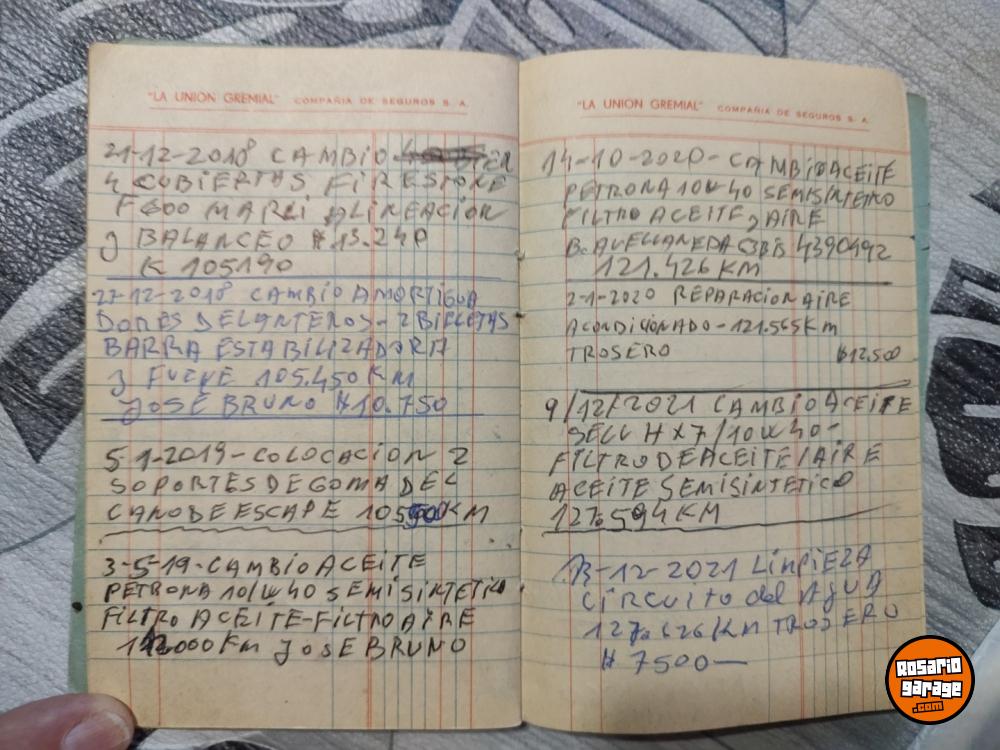 "LA UNION GREMIAL" COMPAÑIA DE SEGUROS S. A.
21-12-2018 CAMBIO
4 CUBIERTAS FIRESTONE
F600 ALINEACION
y BALANCEO $13.240
K 105190
27-12-2018 CAMBIO AMORTIGUA
DORES DELANTEROS - 2 BIELETAS
BARRA ESTABILIZADORA
y FUELLE 105.450 KM
JOSÉ BRUNO $10.750
5-1-2019-COLOCACION 2
SOPORTES DE GOMA DEL
CAÑO DE ESCAPE KM
3-5-19-CAMBIO ACEITE
PETRONA 10/W40 SEMISINTETICO
FILTRO ACEITE-FILTRO AIRE
Km JOSE BRUNO
"LA UNION GREMIAL" COMPAÑIA DE SEGUROS S. A.
14-10-2020-CAMBIO ACEITE
PETRONA 10W40 SEMISINTETICO
FILTRO ACEITE y AIRE
Bº AVELLANEDA 4390492
121.426 KM
2-1-2020 REPARACION AIRE
ACONDICIONADO-121.565 Km
TROSERO $12.500
9/12/2021 CAMBIO ACEITE
SELL HX7/10W40-
FILTRO DE ACEITE/AIRE
ACEITE SEMISINTETICO
127.594 KM
13-12-2021 LIMPIEZA
CIRCUITO del AGUA
127.626 KM TROSERO
$ 7500—
Rosario
garage
.com